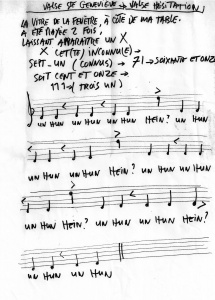 VALSE DE GENEVIEVE → VALSE HÉSITATION
LA VITRE DE LA FENÊTRE, À CÔTÉ DE MA TABLE.
A ÉTÉ 2 FOIS,
LAISSANT APPARAÎTRE UN X
X CET(TE) INCONNU(E) →
SEPT_UN (CONNUS) → 71 → SOIXANTE ET ONZE
SOIT CENT ET ONZE →
111 → (TROIS UN)
UN HUN UN HUN UN HUN HEIN? UN HUN
UN HUN HEIN? UN HUN UN HUN UN HUN
UN HUN HEIN? UN HUN HEIN? UN HUN
UN HUN UN HUN